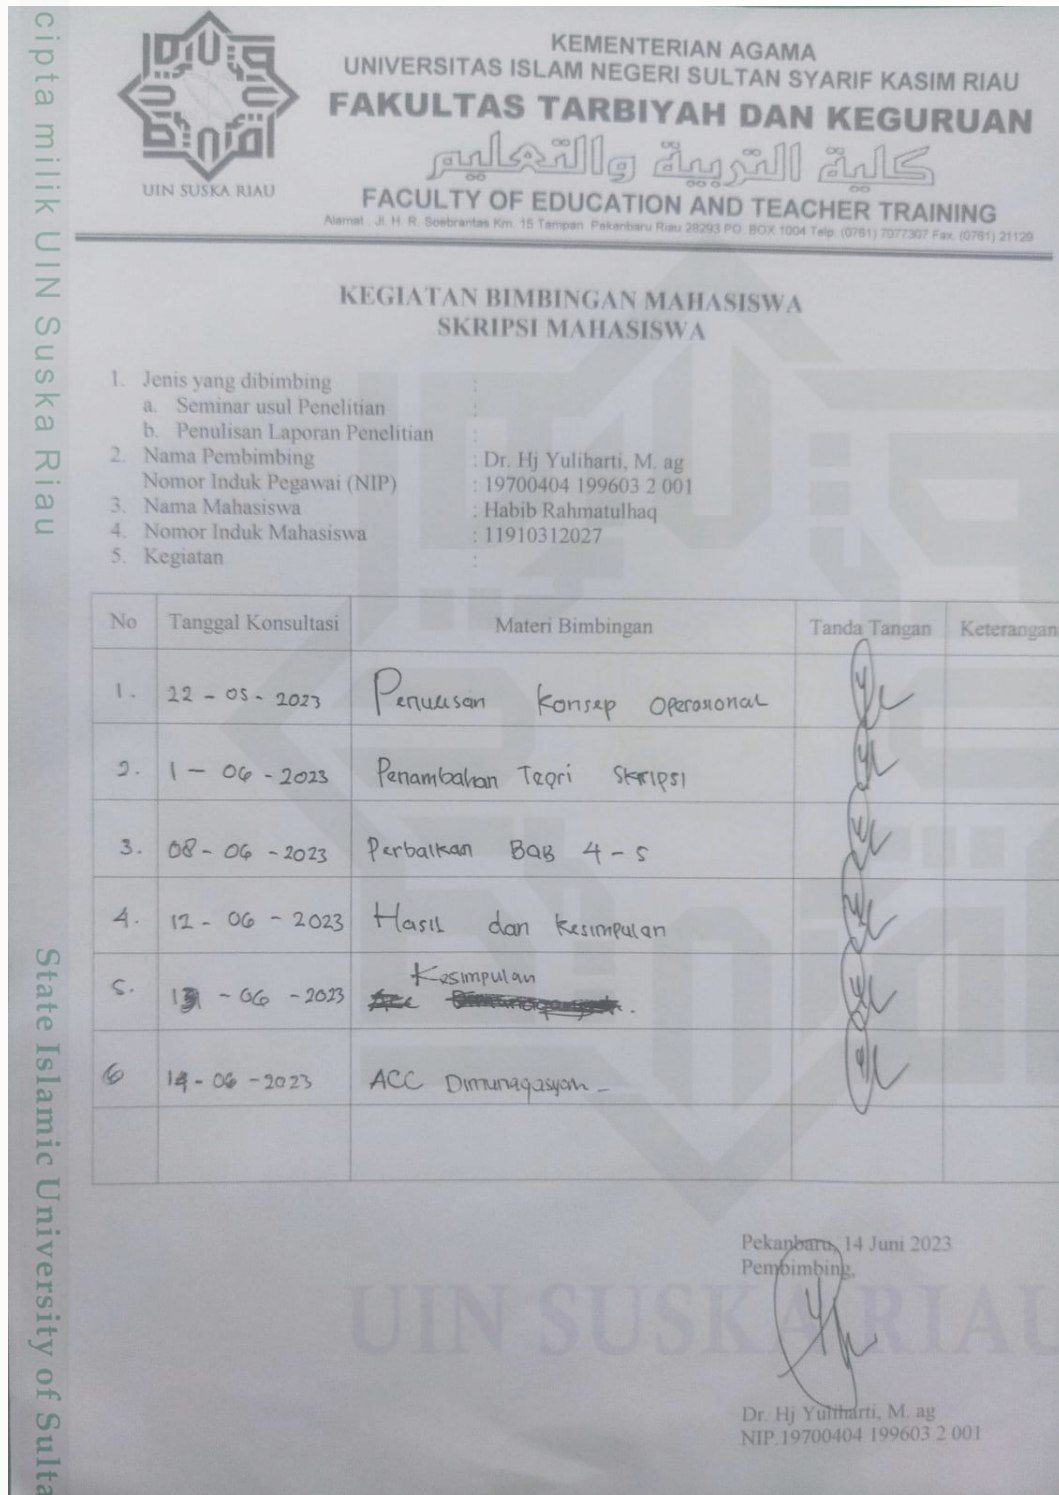 cipta milik UIN Suska Riau
State Islamic University of Sulta
UIN SUSKA RIAU
KEMENTERIAN AGAMA
UNIVERSITAS ISLAM NEGERI SULTAN SYARIF KASIM RIAU
FAKULTAS TARBIYAH DAN KEGURUAN
كلية التربية والتعليم
FACULTY OF EDUCATION AND TEACHER TRAINING
Alamat : Jl. H. R. Soebrantas Km. 15 Tampan Pekanbaru Riau 28293 PO. BOX 1004 Telp. (0761) 7077307 Fax. (0761) 21129
KEGIATAN BIMBINGAN MAHASISWA
SKRIPSI MAHASISWA
1. Jenis yang dibimbing :
a. Seminar usul Penelitian :
b. Penulisan Laporan Penelitian :
2. Nama Pembimbing : Dr. Hj Yuliharti, M. ag
Nomor Induk Pegawai (NIP) : 19700404 199603 2 001
3. Nama Mahasiswa : Habib Rahmatulhaq
4. Nomor Induk Mahasiswa : 11910312027
5. Kegiatan :
No Tanggal Konsultasi Materi Bimbingan Tanda Tangan Keterangan
1. 22 - 05 - 2023 Penulisan Konsep Operasional
2. 1 - 06 - 2023 Penambahan Teori Skripsi
3. 08 - 06 - 2023 Perbaikan Bab 4 - 5
4. 12 - 06 - 2023 Hasil dan Kesimpulan
5. 13 - 06 - 2023 Kesimpulan
6 14 - 06 - 2023 ACC Dimunaqasyah -
Pekanbaru, 14 Juni 2023
Pembimbing,
UIN SUSKA RIAU
Dr. Hj Yuliharti, M. ag
NIP.19700404 199603 2 001